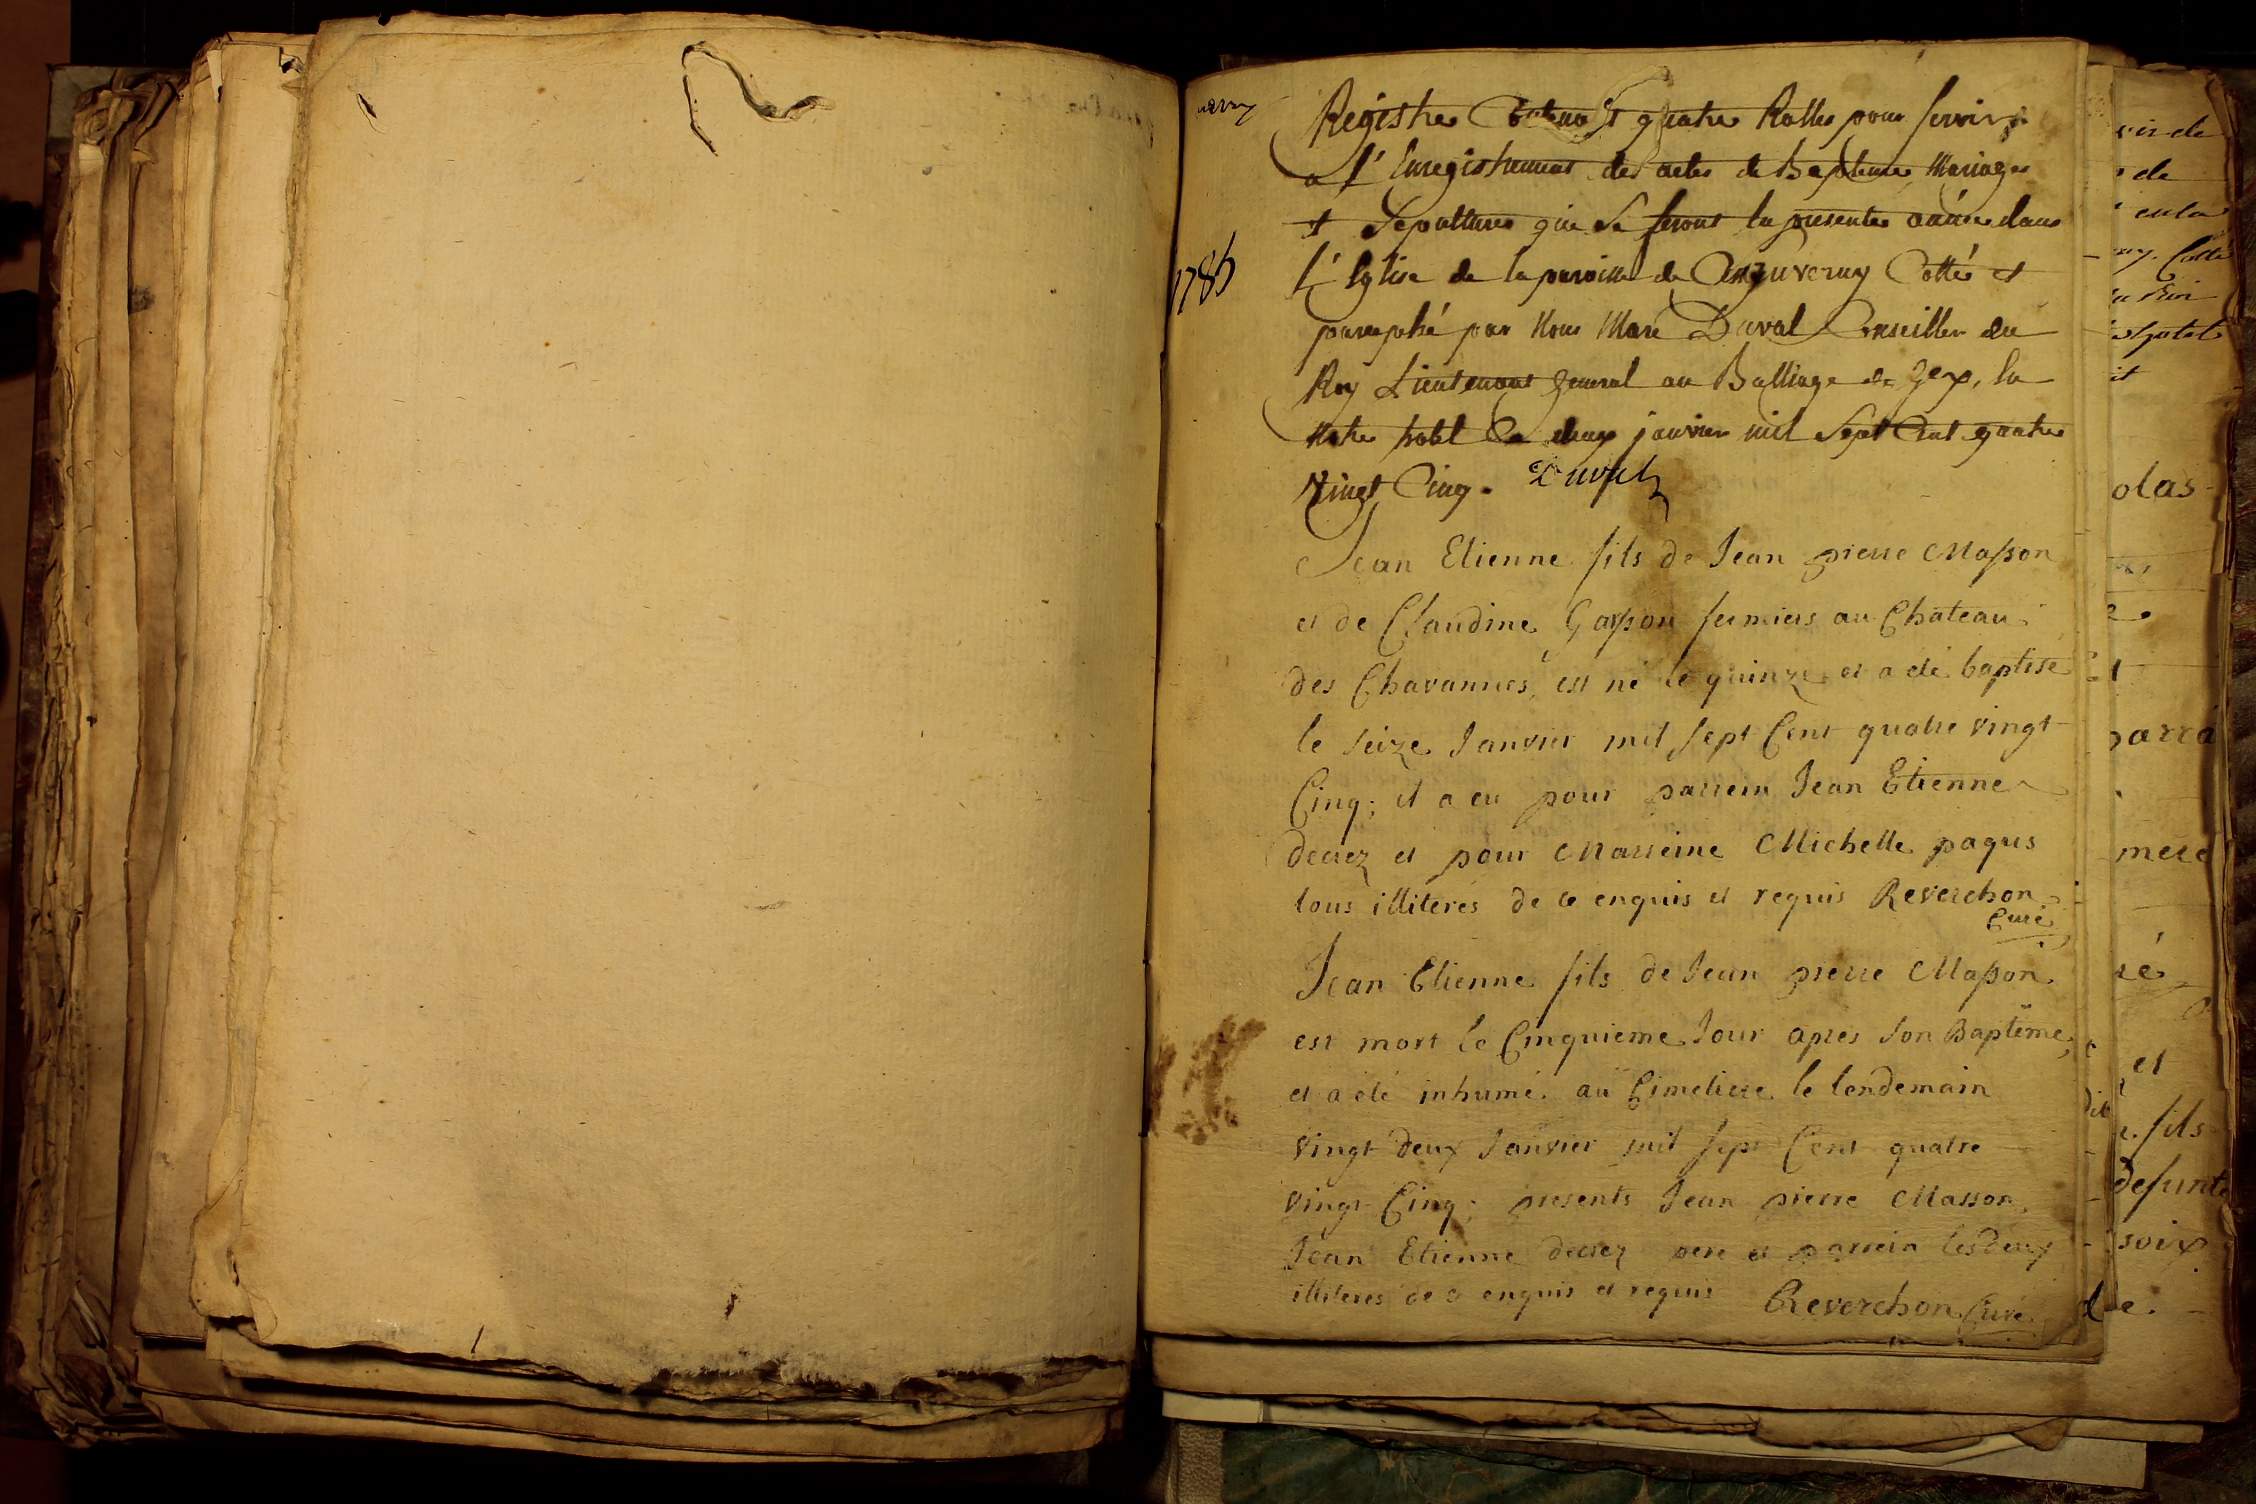 Registre Contenant quatre Rolles pour servir
a l'Enregistrement des actes de Baptemes, Mariages
et Sepultures qui se feront la presente année dans
L'Eglise de la paroisse de Cotté et
paraphé par Nous Marc Duval Conseiller du
Roy Lieutenant general au Balliage de Gex, En
Notre hotel Ce deux janvier mil Sept Cent quatre
Vingt Cinq. Duval
1785
Jean Etienne fils de Jean pierre Masson
et de Claudine fermiers au Chateau
des Chavannes, est né le quinze et a été baptisé
le seize Janvier mil sept Cent quatre vingt
Cinq; il a eu pour parrein Jean Etienne
decrez et pour Marreine Michelle paquis
tous illiterés de ce enquis et requis Reverchon
Curé
Jean Etienne fils de Jean pierre Masson
est mort le Cinquieme Jour apres son Baptême,
et a été inhumé au Cimetiere le lendemain
vingt deux Janvier mil sept Cent quatre
vingt Cinq; presents Jean pierre Masson,
Jean Etienne decrez pere et parrein les deux
illiterés de ce enquis et requis Reverchon Curé
voir de
de
en la
Cotté
olas
parra
mere
et
fils
defunte
soix